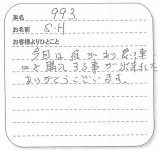 来名 993
お名前 S.H
お客様よりひとこと
今日は 縁があり 思う車
のを購入する事が出来ました
ありがとうございます。